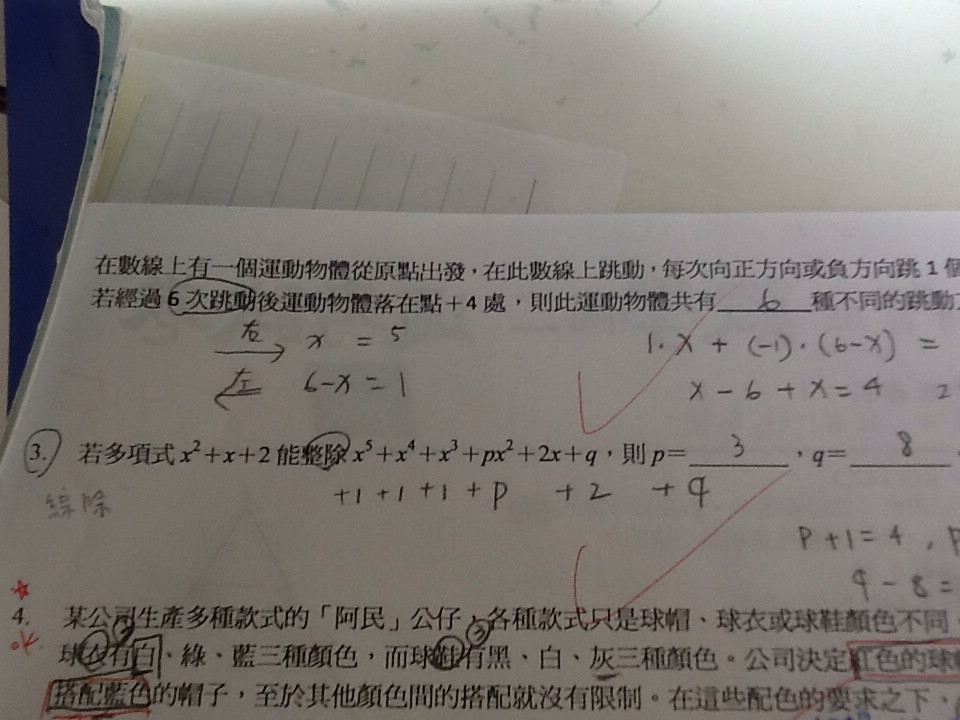 在數線上有一個運動物體從原點出發，在此數線上跳動，每次向正方向或負方向跳1個
若經過6次跳動後運動物體落在點+4處，則此運動物體共有 6 種不同的跳動方
右 x = 5 1·x + (-1)·(6-x) =
左 6-x = 1 x-6+x=4 2
3. 若多項式x²+x+2能整除x⁵+x⁴+x³+px²+2x+q，則p= 3 ，q= 8
+1 +1 +1 +p +2 +q
綜除
p+1=4 , p
q-8=
4. 某公司生產多種款式的「阿民」公仔，各種款式只是球帽、球衣或球鞋顏色不同。
球衣有白、綠、藍三種顏色，而球鞋有黑、白、灰三種顏色。公司決定紅色的球
搭配藍色的帽子，至於其他顏色間的搭配就沒有限制。在這些配色的要求之下，